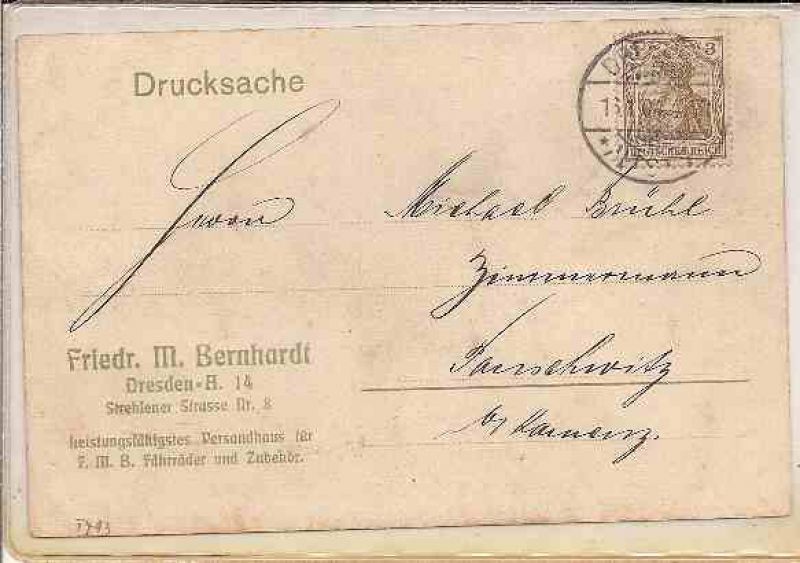 Drucksache
3
DEUTSCHES REICH
Herrn
Michael Brühl
Zimmermann
b/ Kamenz.
Friedr. M. Bernhardt
Dresden-A. 14
Strehlener Strasse Nr. 8
Leistungsfähigstes Versandhaus für
F. M. B. Fahrräder und Zubehör.